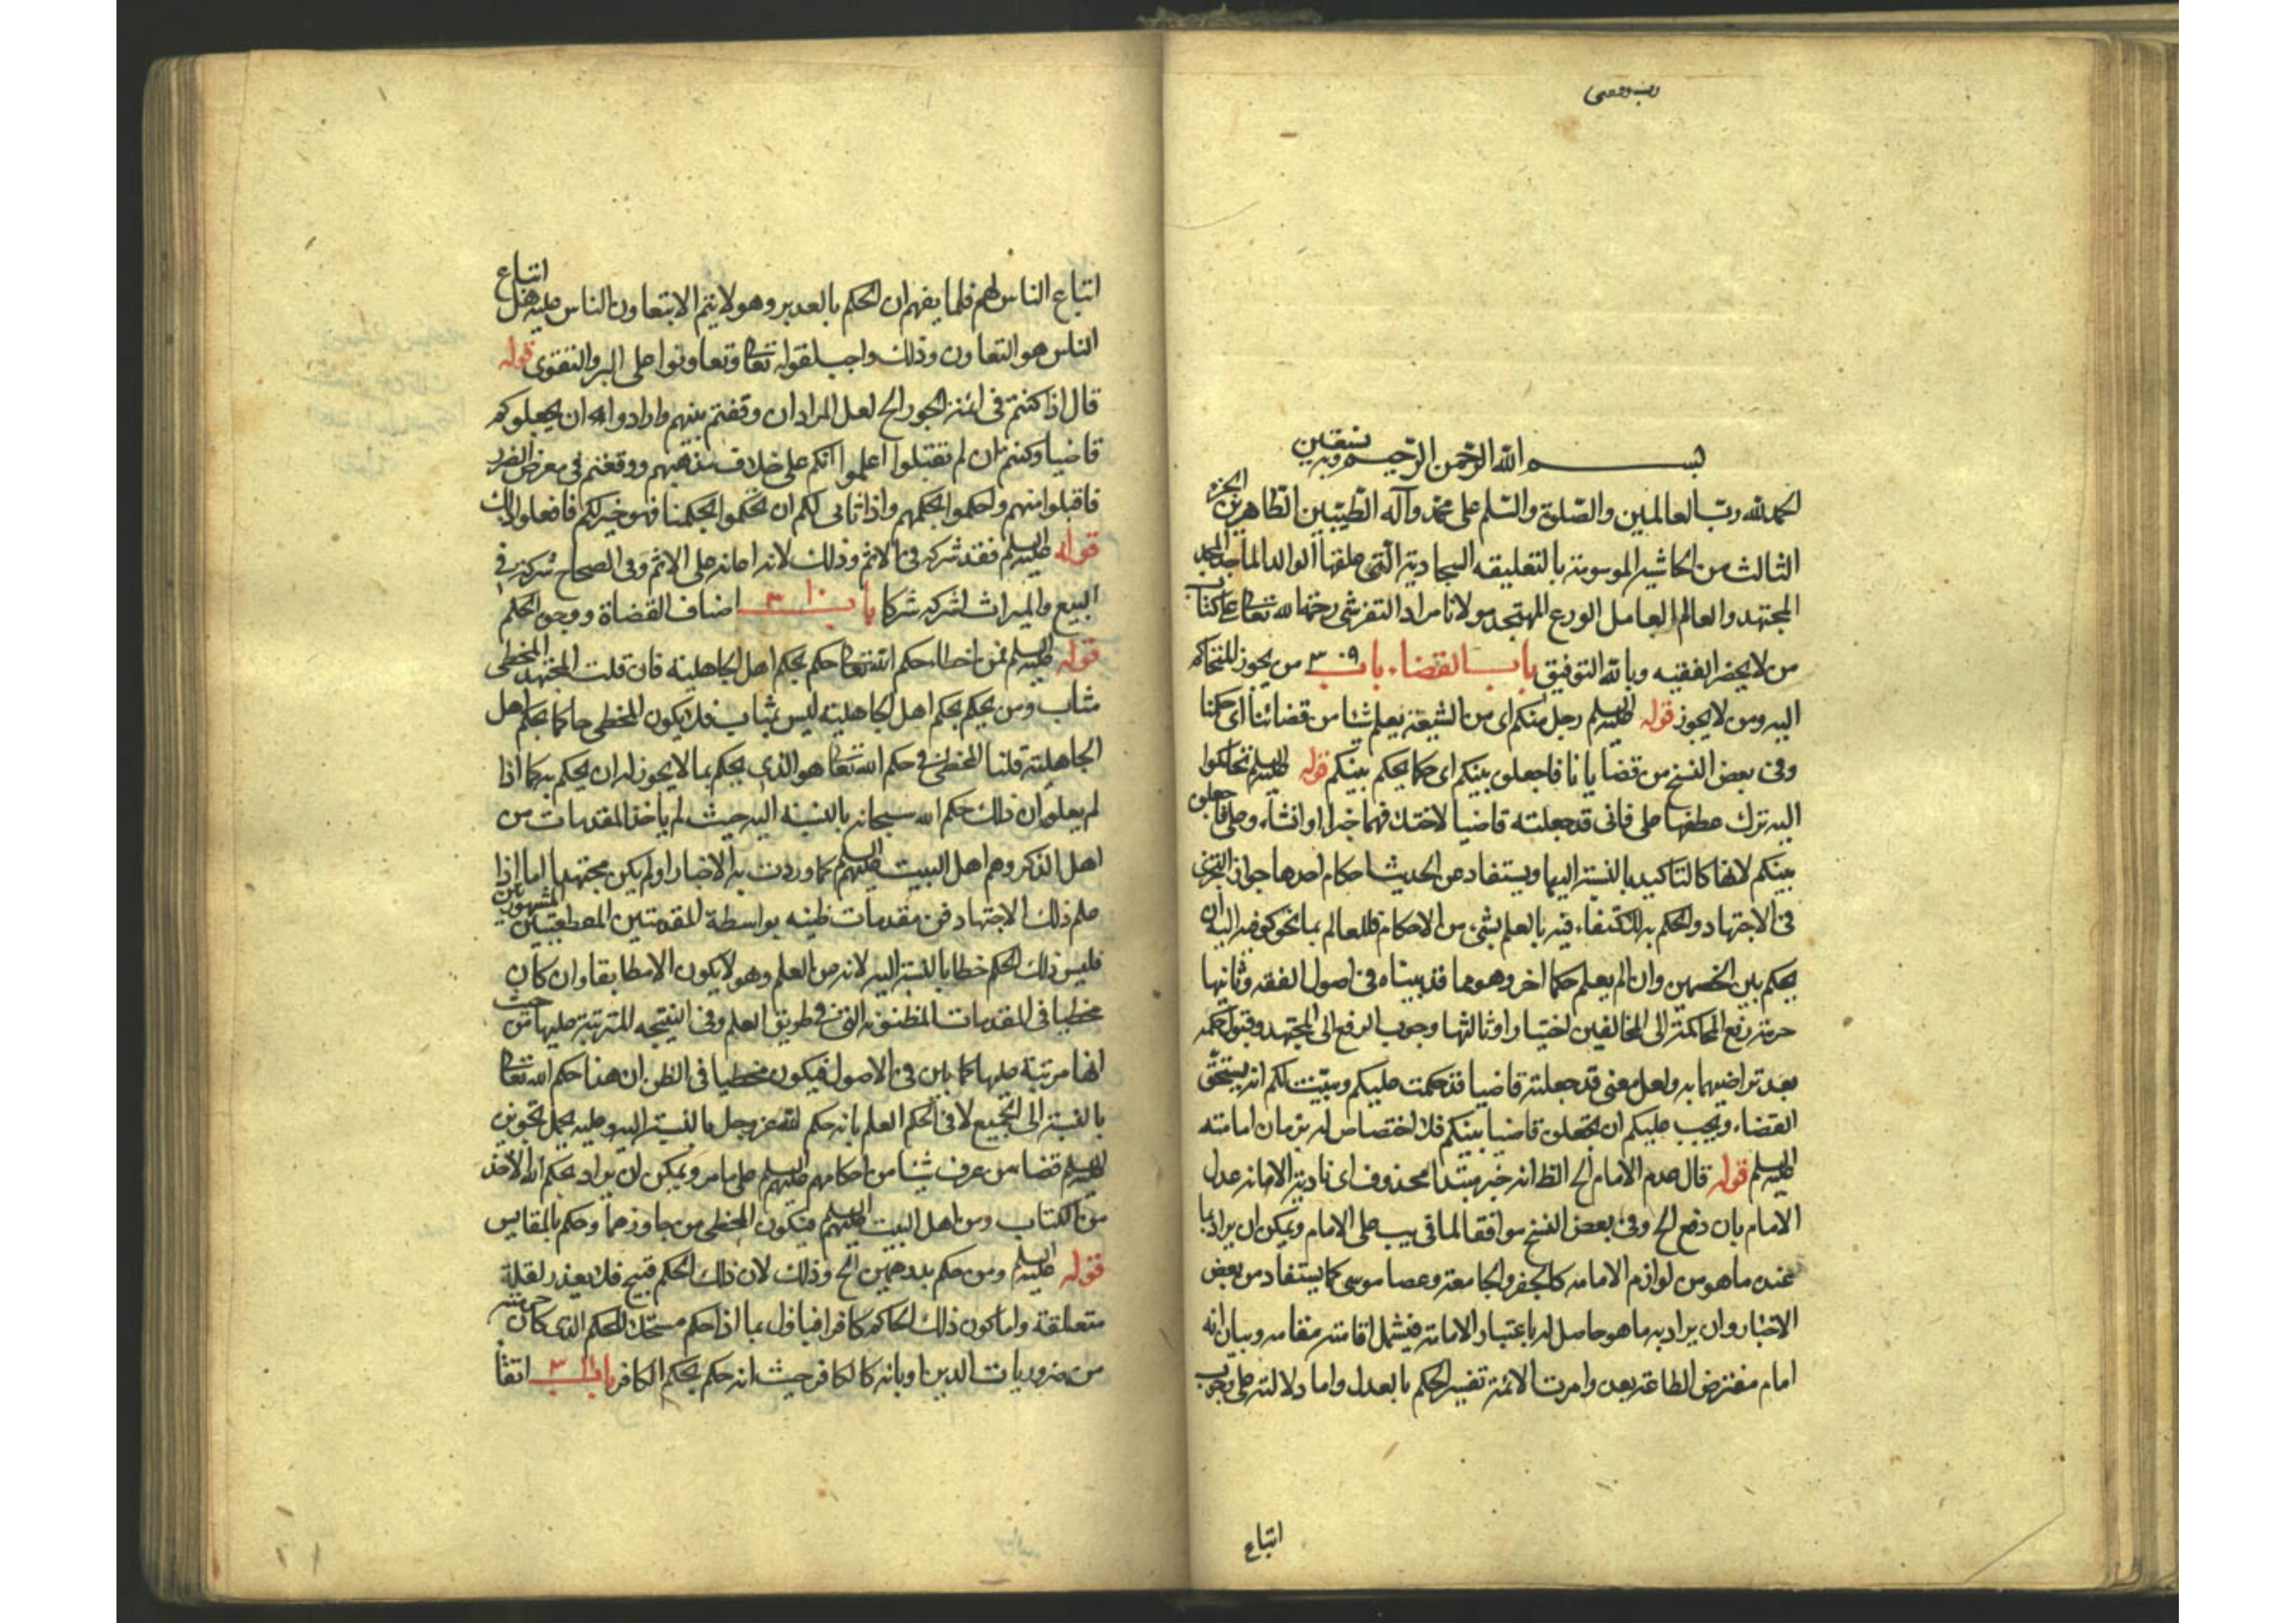 بسم الله الرحمن الرحيم وبه نستعين
الحمد لله رب العالمين والصلوة والسلم على محمد وآله الطيبين الطاهرين الجزء
الثالث من الحاشيه الموسومة بالتعليقه السجادية التى علقها الوالد الماجد
المجتهد والعالم العامل الورع المتهجد مولانا مراد التفرشى رحمه الله تعالى على كتاب
من لا يحضر الفقيه وبالله التوفيق باب القضاء باب ٣٠٩ من يجوز التحاكم
اليه ومن لا يجوز قوله عليه السلم رجل منكم اى من الشيعة يعلم شيئا من قضائنا اى حكمنا
وفى بعض النسخ من قضايانا فاجعلوه بينكم اى حكما يحكم بينكم قوله عليه السلم تحاكموا
اليه ترك عطفها على فانى قد جعلته قاضيا لاختلافهما خبرا وانشاء وعلى فاجعلوه
بينكم لانها كالتاكيد بالنسبة اليها ويستفاد من الحديث احكام احدها جواز التجزى
فى الاجتهاد والحكم به للاكتفاء فيه بالعلم بشىء من الاحكام فللعالم بما نحوكم فيه اليه ان
يحكم بين الخصمين وان لم يعلم حكما اخر وهو مما قد بيناه فى اصول الفقه وثانيها
حرمة رفع المحاكمة الى المخالفين اختيارا وثالثها وجوب الرفع الى المجتهد وقبول حكمه
بعد تراضيهما به ولعل معنى قد جعلته قاضيا قد حكمت عليكم وبينت لكم انه يستحق
القضاء ويجب عليكم ان تجعلوه قاضيا بينكم فلا اختصاص له بزمان امامته
عليه السلم قوله قال عدم الامام الخ الظ انه خبر مبتدا محذوف اى تادية الامانة عدل
الامام بان دفع الخ وفى بعض النسخ موافقا لما فى يب على الامام ويمكن ان يراد بما
عنده ما هو من لوازم الامامه كالجفر والجامعة وعصا موسى كما يستفاد من بعض
الاخبار وان يراد به ما هو حاصل له باعتبار الامامة فيشمل اقامته مقامه وبيان انه
امام مفترض الطاعة بعده وامرت الائمة تفسير الحكم بالعدل واما دلالته على وجوب
اتباع
اتباع الناس لهم فلما يفهم ان الحكم بالعدل بر وهو لا يتم الا بتعاون الناس عليه فعلى اتباع
الناس هو التعاون وذلك واجب لقوله تعالى وتعاونوا على البر والتقوى قوله
قال اذا كنتم فى ائمة الجور الخ لعل المراد ان وقفتم بينهم وارادوا ان يجعلوكم
قاضيا وكنتم ان لم تقبلوا اعلموا انكم على خلاف مذهبهم ووقعتم فى معرض الضرر
فاقبلوا منهم واحكموا بحكمهم واذا تأتى لكم ان تحكموا بحكمنا فهو خير لكم فافعلوا ذلك
قوله عليه السلم فقد شركه فى الاثم وذلك لانه اعانه على الاثم وفى الصحاح شركته فى
البيع والميراث اشركه شركا باب ٣١٠ اصناف القضاة ووجوه الحكم
قوله عليه السلم فمن اخطاء حكم الله تعالى حكم بحكم اهل الجاهلية فان قلت المجتهد المخطى
مثاب ومن يحكم بحكم اهل الجاهلية ليس بمثاب فلا يكون المخطى حاكما بحكم اهل
الجاهلية قلنا المخطى فى حكم الله تعالى هو الذى يحكم بما لا يجوز له ان يحكم به كما اذا
لم يعلم ان ذلك حكم الله سبحانه بالنسبة اليه حيث لم ياخذ المقدمات من
اهل الذكر وهم اهل البيت عليهم السلم كما وردت به الاخبار اولم يكن مجتهدا اما اذا
علم ذلك الاجتهاد من مقدمات ظنيه بواسطة المقدمتين القطعيتين المشهورتين
فليس ذلك الحكم خطا بالنسبة اليه لانه من العلم وهو لا يكون الا مطابقا وان كان
مخطيا فى المقدمات المظنونة التى فى طريق العلم وفى النتيجة المترتبة عليها من حيث
انها مرتبة عليها كما بين فى الاصول فيكون مخطيا فى الظن ان هذا حكم الله تعالى
بالنسبة الى الجميع لا فى الحكم العلم بانه حكم الله عز وجل بالنسبة اليه وعليه يحمل تجويز
عليه السلم قضاء من عرف شيئا من احكامهم عليهم السلم على ما مر ويمكن ان يراد بحكم الله الاخذ
من الكتاب ومن اهل البيت عليهم السلم فيكون المخطى من جاوزهما وحكم بالمقاييس
قوله عليه السلم ومن حكم بدرهمين الخ وذلك لان ذلك الحكم قبيح فلا يعذر لقلة
متعلقة واما كون ذلك الحاكم كافرا فياول بما اذا حكم مستحلا للحكم الذى كان حرمته
من ضروريات الدين او بانه كالكافر حيث انه حكم بحكم الكافر باب ٣١١ اتقا